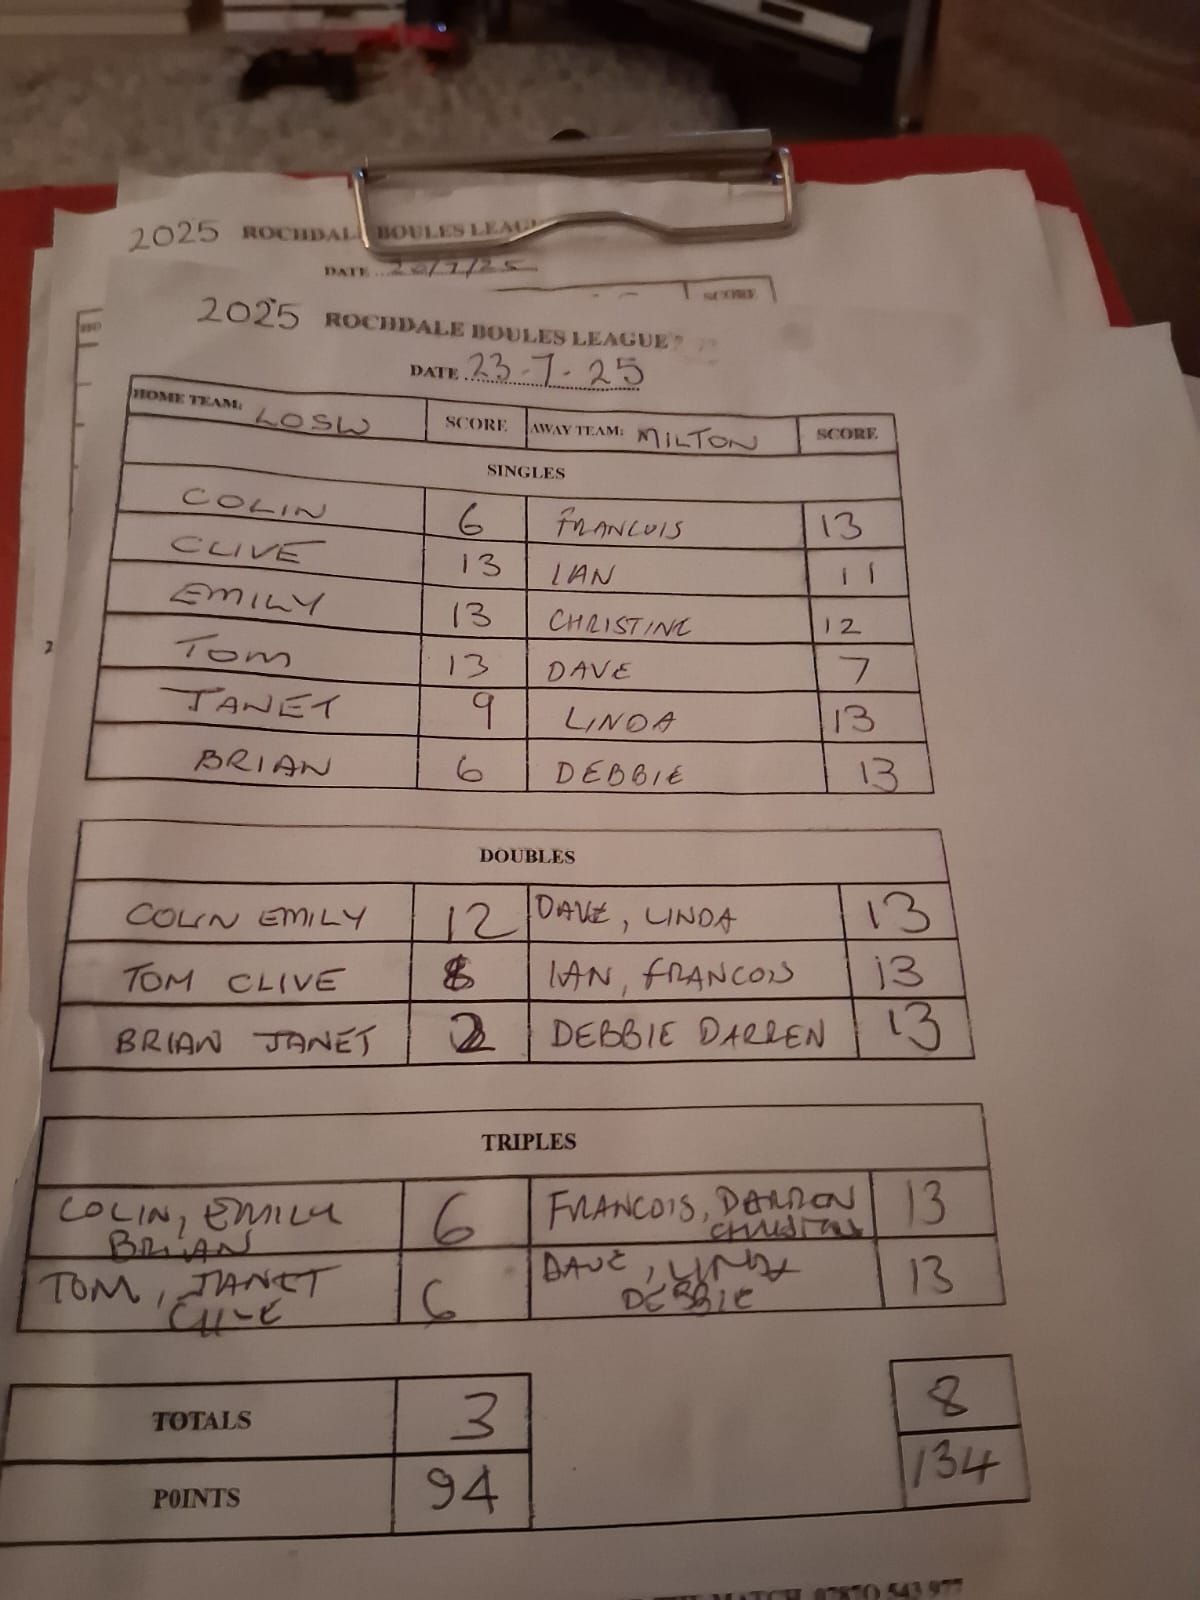 2025 ROCHDAL BOULES LEAGU
DATE 20/7/25
SCORE
2025 ROCHDALE BOULES LEAGUE
DATE 23-7-25
HOME TEAM: LOSW SCORE AWAY TEAM: MILTON SCORE
SINGLES
COLIN 6 FRANCOIS 13
CLIVE 13 IAN 11
EMILY 13 CHRISTINE 12
TOM 13 DAVE 7
JANET 9 LINDA 13
BRIAN 6 DEBBIE 13
DOUBLES
COLIN EMILY 12 DAVE, LINDA 13
TOM CLIVE 8 IAN, FRANCOIS 13
BRIAN JANET 2 DEBBIE DARREN 13
TRIPLES
COLIN, EMILY BRIAN 6 FRANCOIS, DARREN CHRISTINE 13
TOM, JANET CLIVE 6 DAVE, LINDA DEBBIE 13
TOTALS 3 8
POINTS 94 134
MATCH 07870 543 977